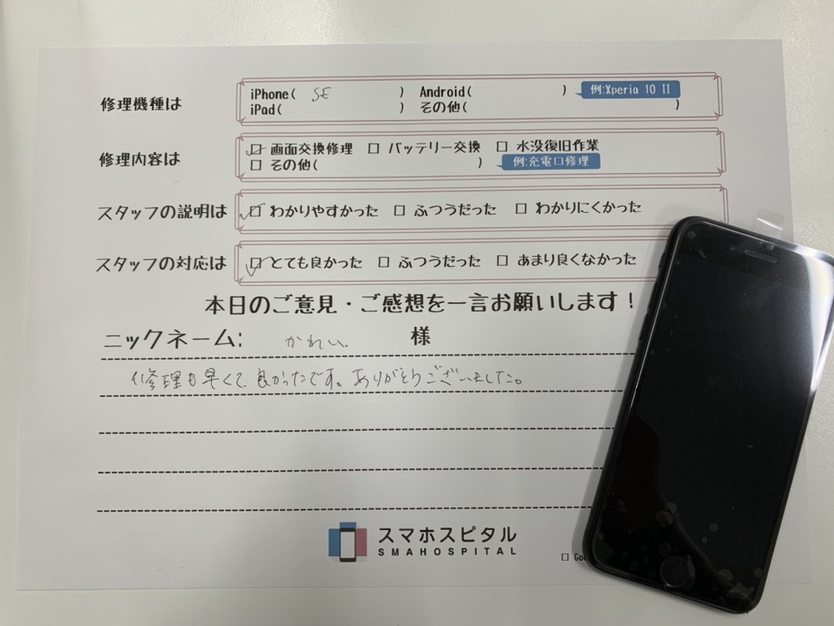 修理機種は
iPhone( SE ) Android( ) 例:Xperia 10 II
iPad( ) その他( )
修理内容は
☑ 画面交換修理 □ バッテリー交換 □ 水没復旧作業
□ その他( ) 例:充電口修理
スタッフの説明は ☑ わかりやすかった □ ふつうだった □ わかりにくかった
スタッフの対応は ☑ とても良かった □ ふつうだった □ あまり良くなかった
本日のご意見・ご感想を一言お願いします!
ニックネーム: かれい 様
修理も早くて良かったです。ありがとうございました。
スマホスピタル
SMAHOSPITAL